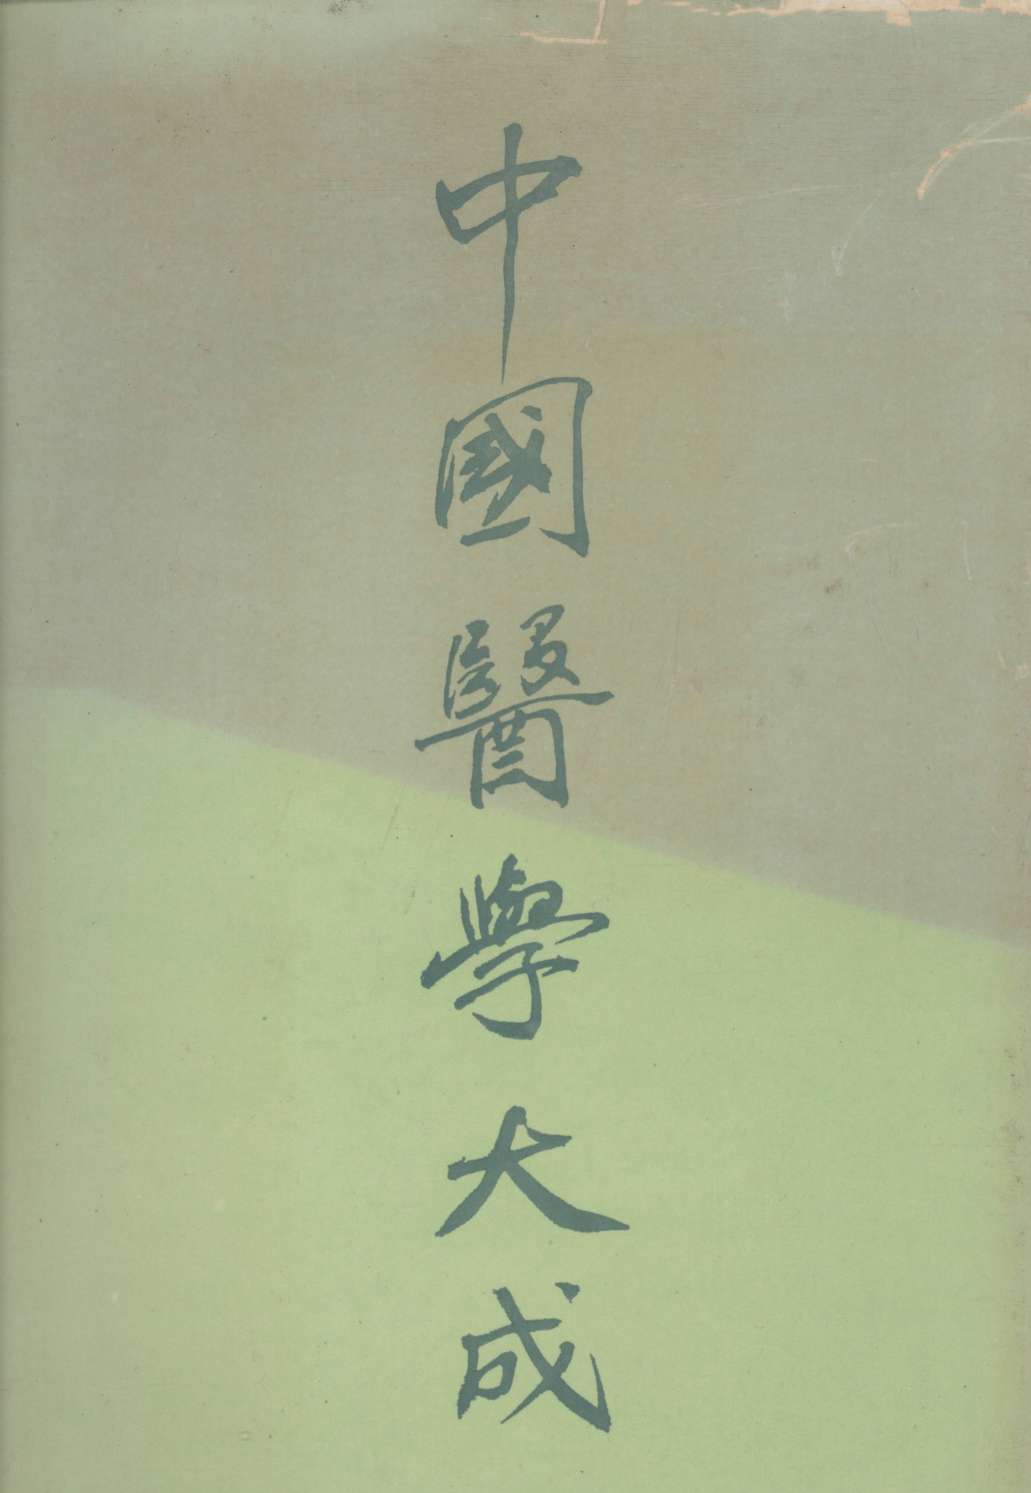 中國醫學大成